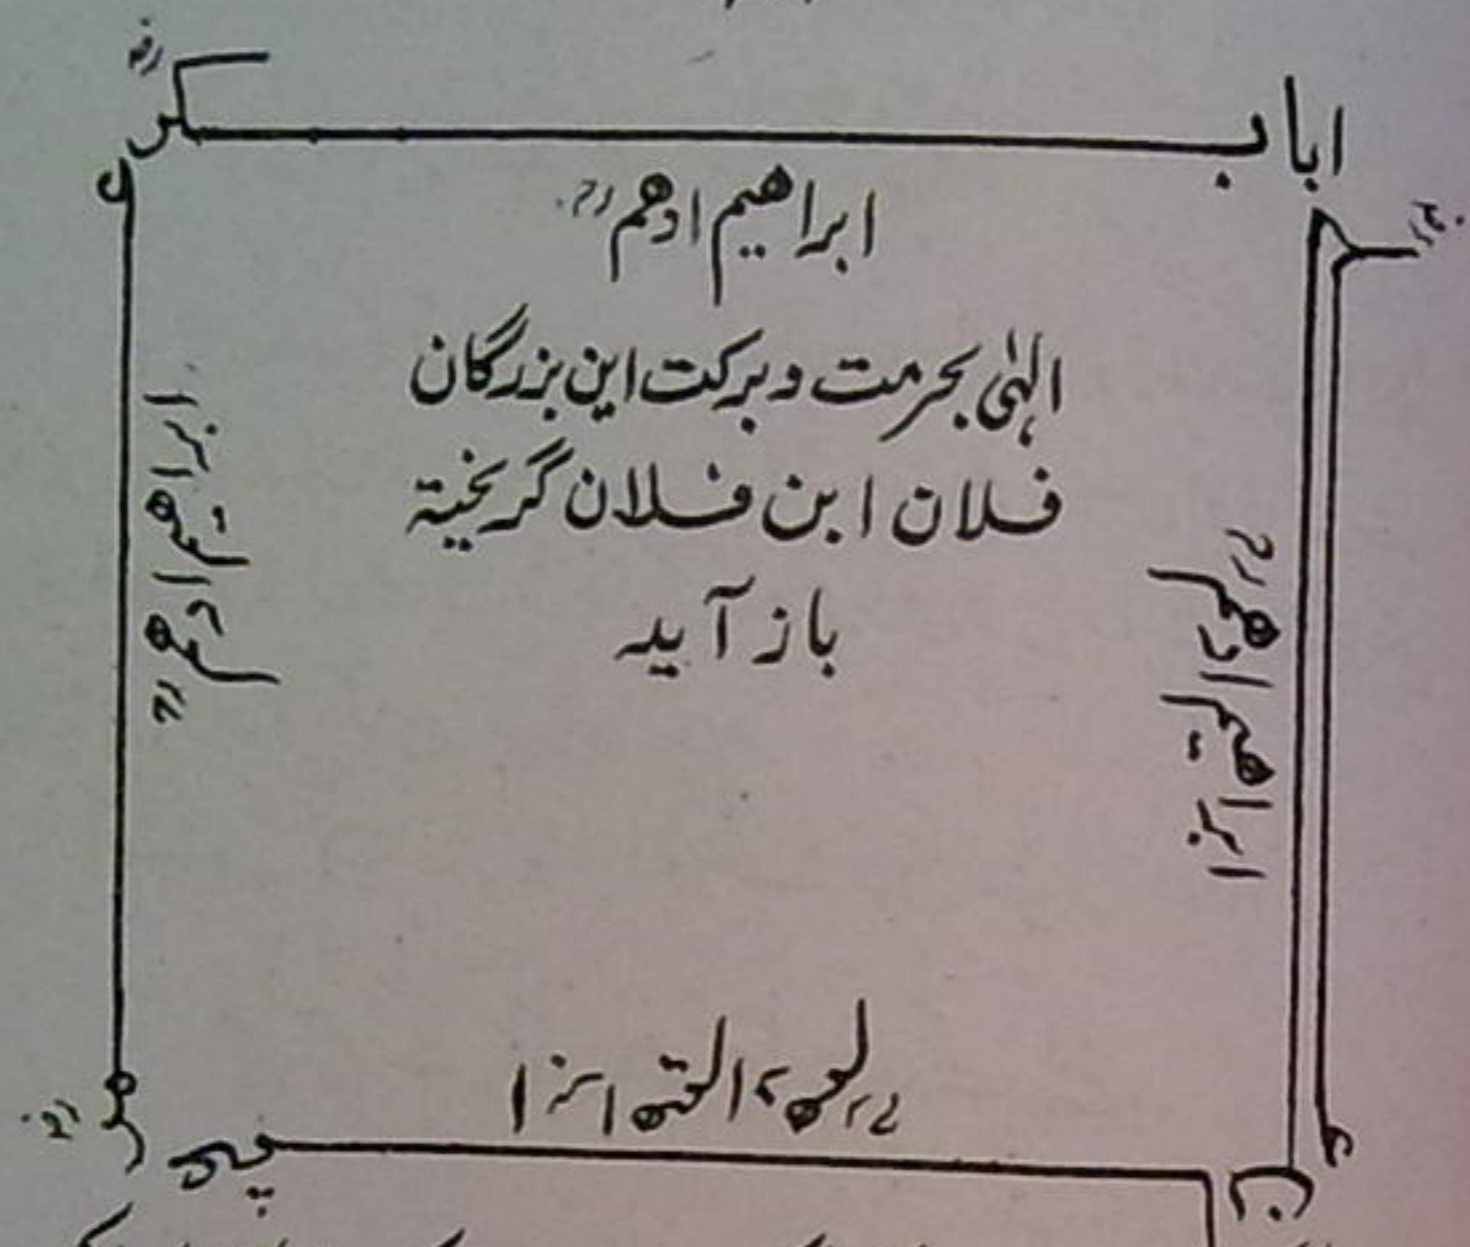 ابا بکر رض
ابراهیم ادهم رح
الہٰی بحرمت و برکت این بزرگان
فلان ابن فلان گریختہ
باز آید
ابراهیم ادهم رح
ابراهیم ادهم رح
ابراهیم ادهم رح
عمر رض